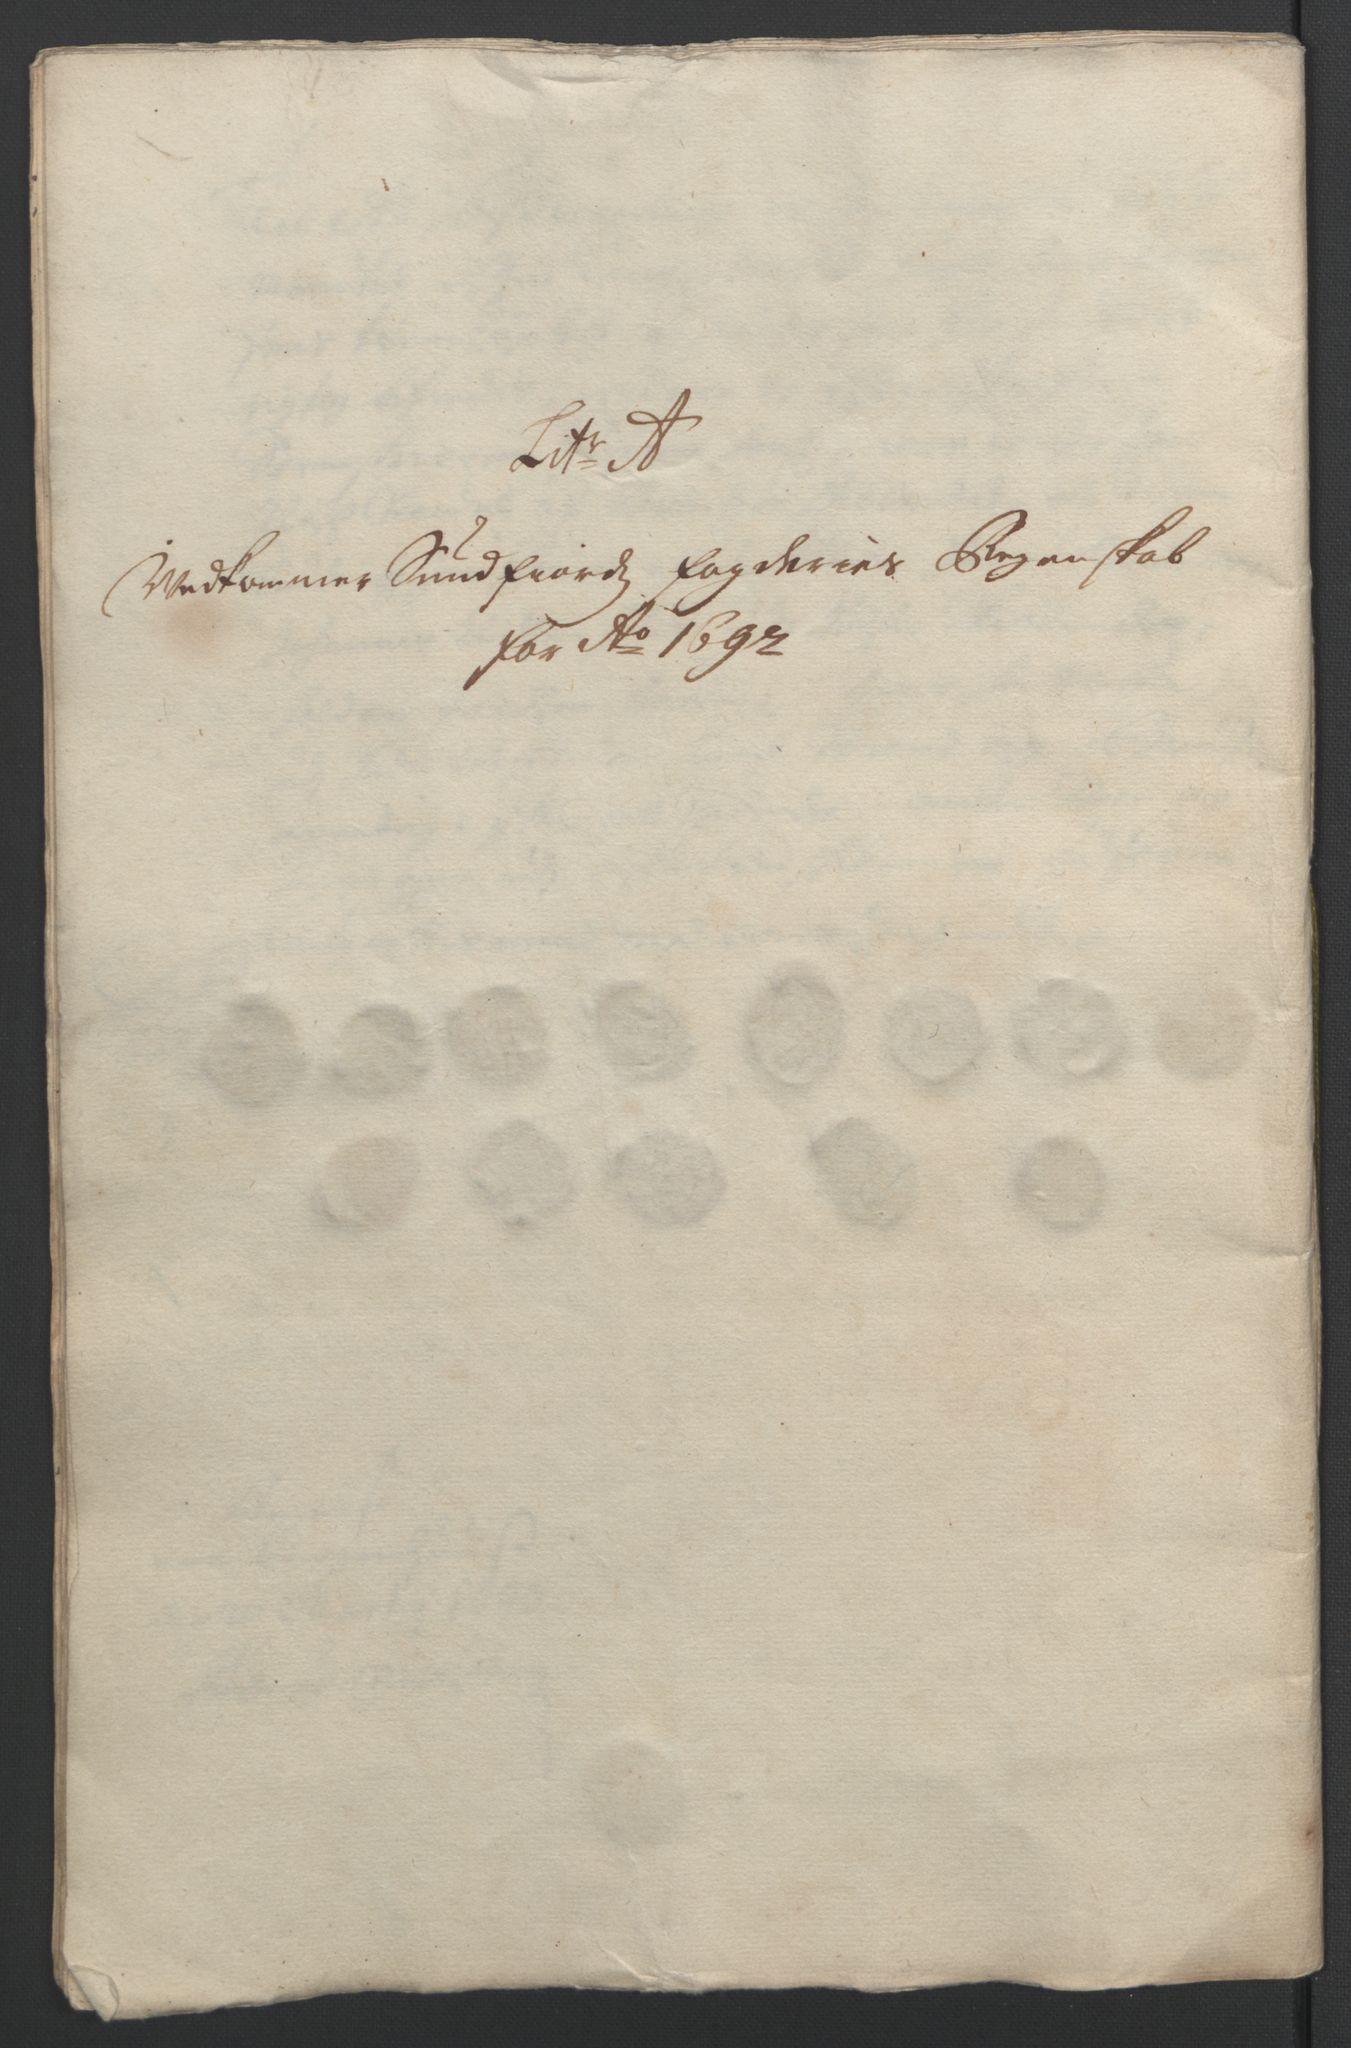 Litr A
Vedkommer Sundfiordz fogderies Regenskab
for Ao 1692